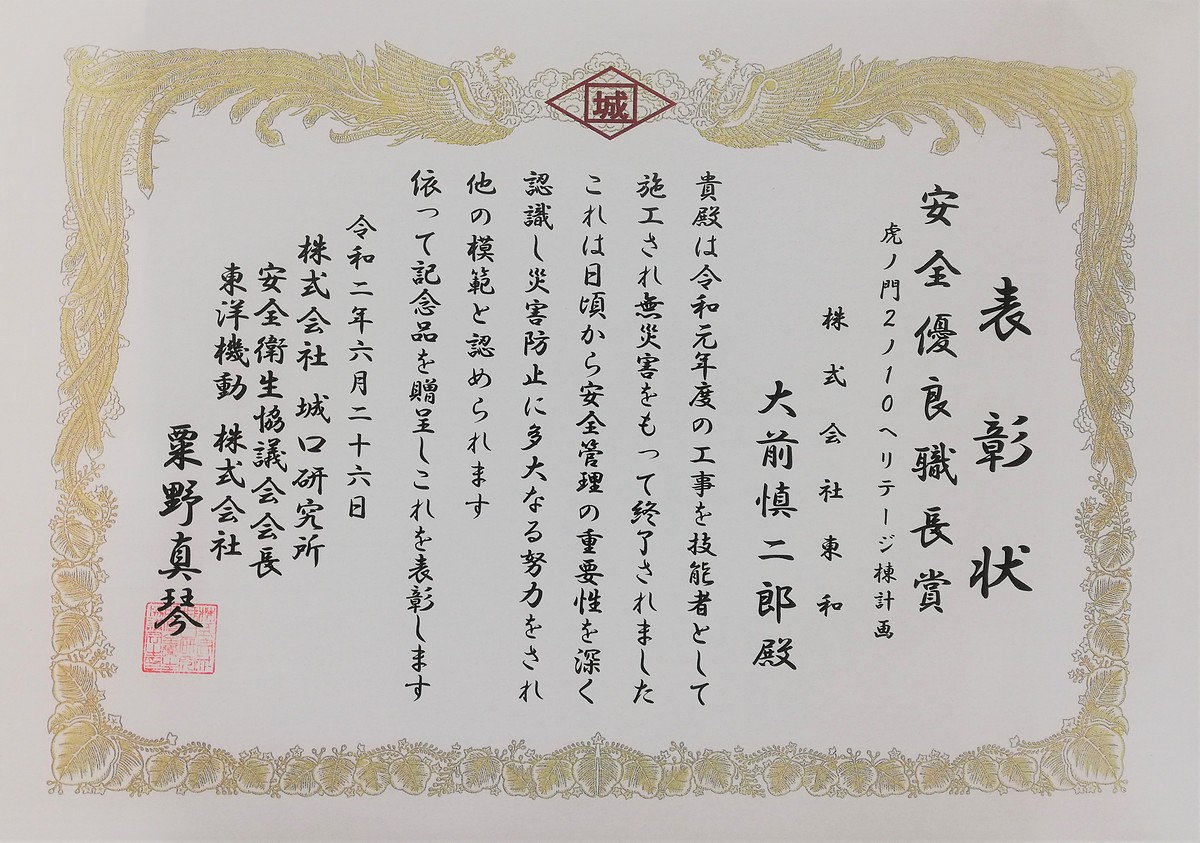 城
表彰状
安全優良職長賞
虎ノ門2ノ10ヘリテージ棟計画
株式会社東和
大前慎二郎殿
貴殿は令和元年度の工事を技能者として
施工され無災害をもって終了されました
これは日頃から安全管理の重要性を深く
認識し災害防止に多大なる努力をされ
他の模範と認められます
依って記念品を贈呈しこれを表彰します
令和二年六月二十六日
株式会社 城口研究所
安全衛生協議会会長
東洋機動 株式会社
粟野真琴